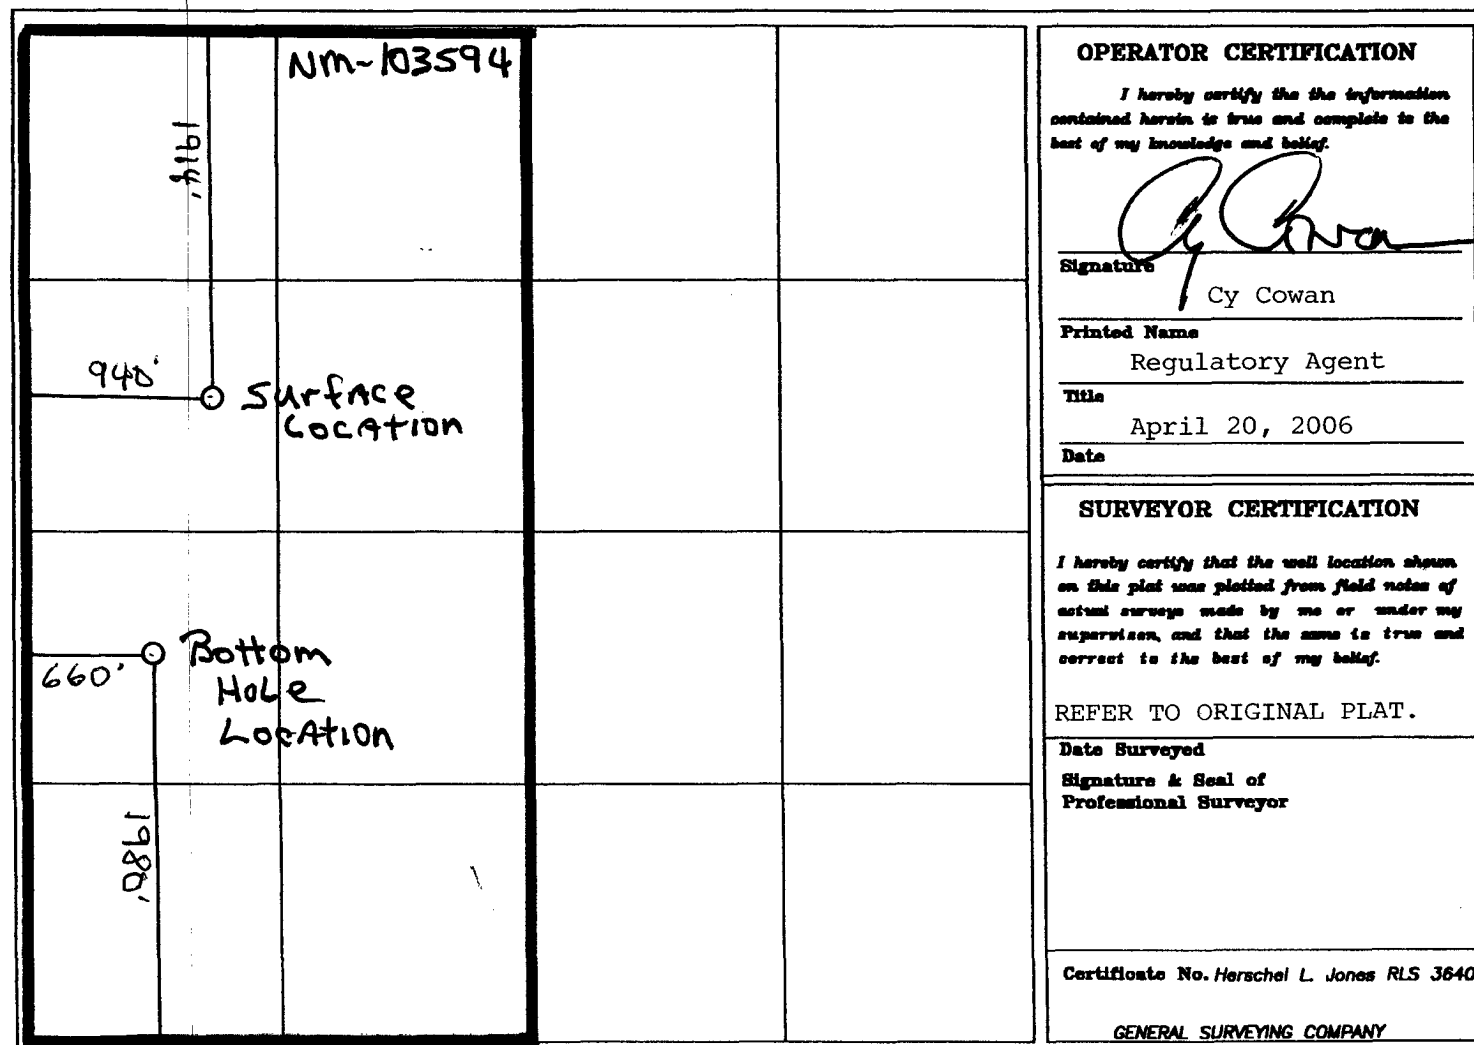 NM-103594
1914'
940'
Surface
Location
660'
Bottom
Hole
Location
1980'
OPERATOR CERTIFICATION
I hereby certify the the information
contained herein is true and complete to the
best of my knowledge and belief.
Cy Cowan
Signature
Cy Cowan
Printed Name
Regulatory Agent
Title
April 20, 2006
Date
SURVEYOR CERTIFICATION
I hereby certify that the well location shown
on this plat was plotted from field notes of
actual surveys made by me or under my
supervison, and that the same is true and
correct to the best of my belief.
REFER TO ORIGINAL PLAT.
Date Surveyed
Signature & Seal of
Professional Surveyor
Certificate No. Herschel L. Jones RLS 3640
GENERAL SURVEYING COMPANY